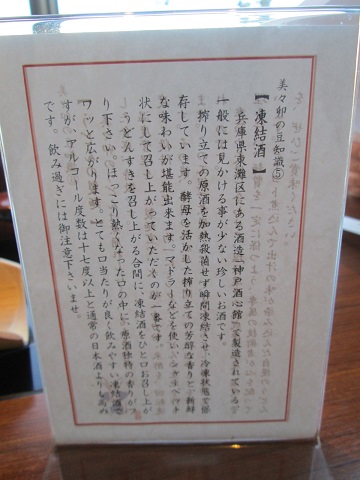 美々卯の豆知識⑤
【凍結酒】
兵庫県東灘区にある酒造「神戸酒心館」で製造されている
一般には見かける事が少ない珍しいお酒です。
搾り立ての原酒を加熱殺菌せず瞬間凍結させ、冷凍状態で保
存しています。酵母を活かした搾り立ての芳醇な香りと、新鮮
な味わいが堪能出来ます。マドラーなどを使い、シャーベット
状にして召し上がっていただくのが一番です。
うどんすきを召し上がる合間に、凍結酒をひと口お召し上が
り下さい。ほっこり熱くなった口の中に、原酒独特の香りがフ
ワッと広がります。とても口当たりが良く飲みやすい凍結酒で
すが、アルコール度数は十七度以上と通常の日本酒よりも高め
です。飲み過ぎには御注意下さいませ。